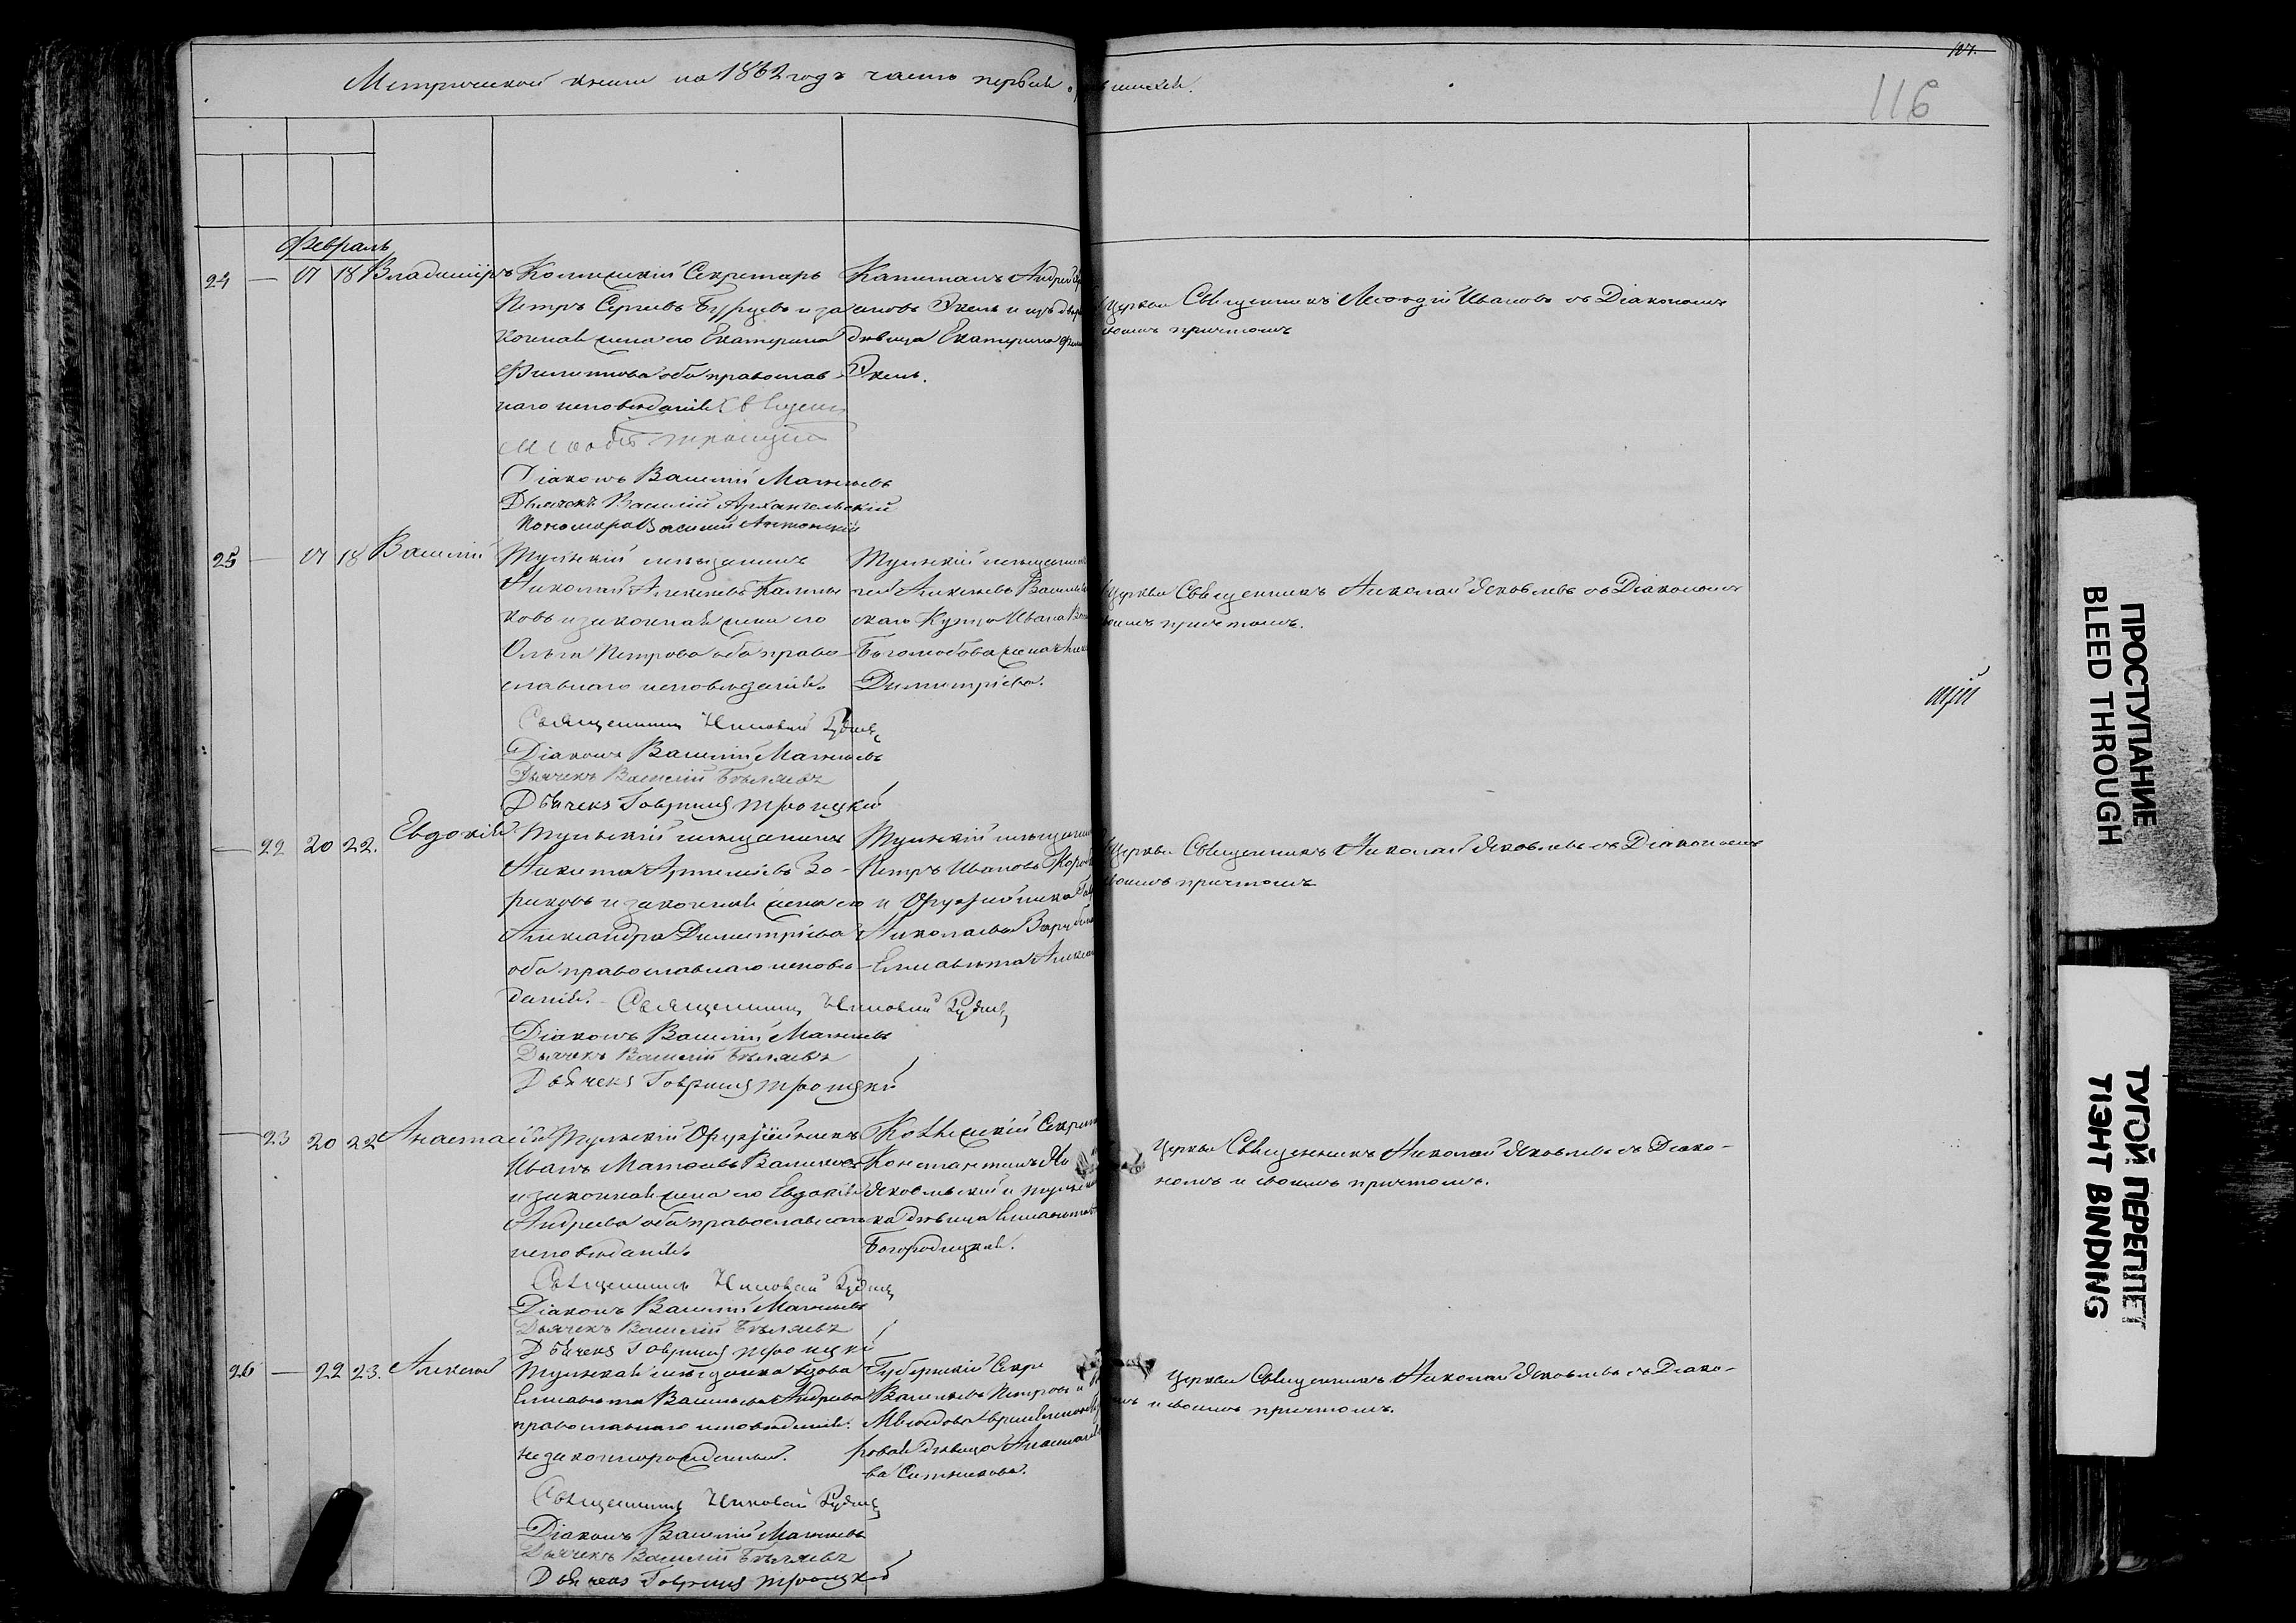 Метрической книги на 1862 годъ часть первая о родившихся.
107.
116
Февраль
24 — 17 18 Владиміръ
Коллежскій Секретарь
Петръ Сергѣевъ Бурцевъ и за
конная жена его Екатерина
Филиппова оба православ
наго исповѣданія. Священ
Меѳодій Троицкій
Діаконъ Василій Матвѣевъ
Дьячекъ Василій Архангельскій
Пономарь Василій Антонскій
Капитанъ Андрей
Экель и изъ двор
дѣвица Екатерина Филип
Экель.
Церкви Священникъ Меѳодій Ивановъ съ Діакономъ
своимъ причтомъ
25 — 17 18 Василій
Тульскій мѣщанинъ
Николай Алексѣевъ Калин
ковъ и законная жена его
Ольга Петрова оба право
славнаго исповѣданія.
Священникъ Николай Руднев
Діаконъ Василій Матвѣевъ
Дьячекъ Василій Бѣляевъ
Дьячекъ Гавріилъ Троицкій
Тульскій мѣщанин
Алексѣевъ Васильев
скаго Купца Ивана
Боголюбова жена
Димитріева.
Церкви Священникъ Николай Яковлевъ съ Діакономъ
своимъ причтомъ.
— 22 20 22. Евдокія
Тульскій мѣщанинъ
Никита Артемьевъ Зо-
риковъ и законная жена его
Александра Димитріева
оба православнаго исповѣ-
данія.
Священникъ Николай Руднев
Діаконъ Василій Матвѣевъ
Дьячекъ Василій Бѣляевъ
Дьячекъ Гавріилъ Троицкій
Тульскій мѣщанин
Петръ Ивановъ
и Оружейника
Николаева
Елисавета Алексан
Церкви Священникъ Николай Яковлевъ съ Діакономъ
своимъ причтомъ
— 23 20 22 Анастасія
Тульскій Оружейникъ
Иванъ Матвѣевъ
и законная жена его Евдокія
Андреева оба православнаго
исповѣданія.
Священникъ Николай Руднев
Діаконъ Василій Матвѣевъ
Дьячекъ Василій Бѣляевъ
Дьячекъ Гавріилъ Троицкій
Коллежскій Секрет
Константинъ
Яковлевскій и Тульск
ка дѣвица Елисавета
Богородицкая.
Церкви Священникъ Николай Яковлевъ съ Діако-
номъ и своимъ причтомъ.
26 — 22 23. Алексѣй
Тульская мѣщанка вдова
Елисавета Васильева Андреева
православнаго исповѣданія.
незаконнорожденный.
Священникъ Николай Руднев
Діаконъ Василій Матвѣевъ
Дьячекъ Василій Бѣляевъ
Дьячекъ Гавріилъ Троицкій
Губернскій Секре
Васильевъ Петровъ и
дѣвица Анастасія
ва Ситникова.
Церкви Священникъ Николай Яковлевъ съ Діако-
номъ и своимъ причтомъ.
ПРОСТУПАНИЕ
BLEED THROUGH
ТУГОЙ ПЕРЕПЛЕТ
TIGHT BINDING